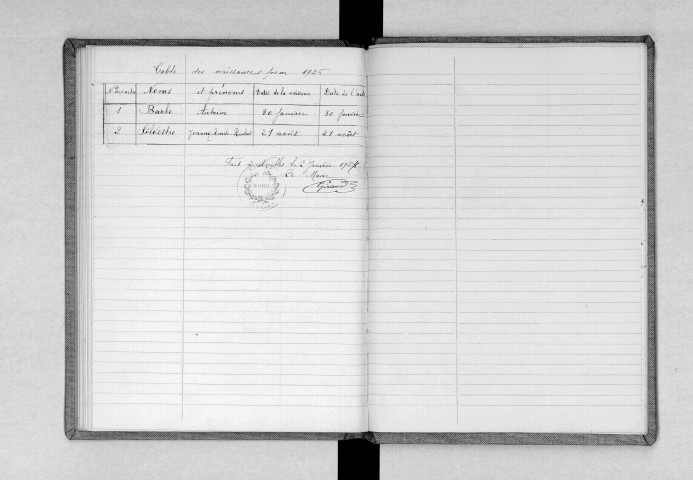 Table des naissances pour 1926
Noms et prénoms Date de la naissance Date de l'acte
1 Barbe Antoine 30 Janvier 30 Janvier
2 Jeanne 21 août 21 août
Fait à le 2 Janvier
Le Maire